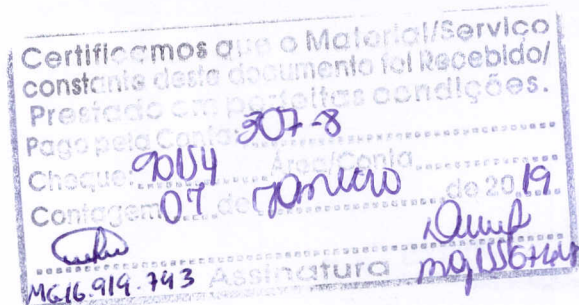 Certificamos que o Material/Serviço
constante deste documento foi Recebido/
Prestado em perfeitas condições.
Pago pela Conta: 307-8
Cheque: 90154 Área/Conta
Contagem 07 de Janeiro de 20 19
MG16.919.793 Assinatura